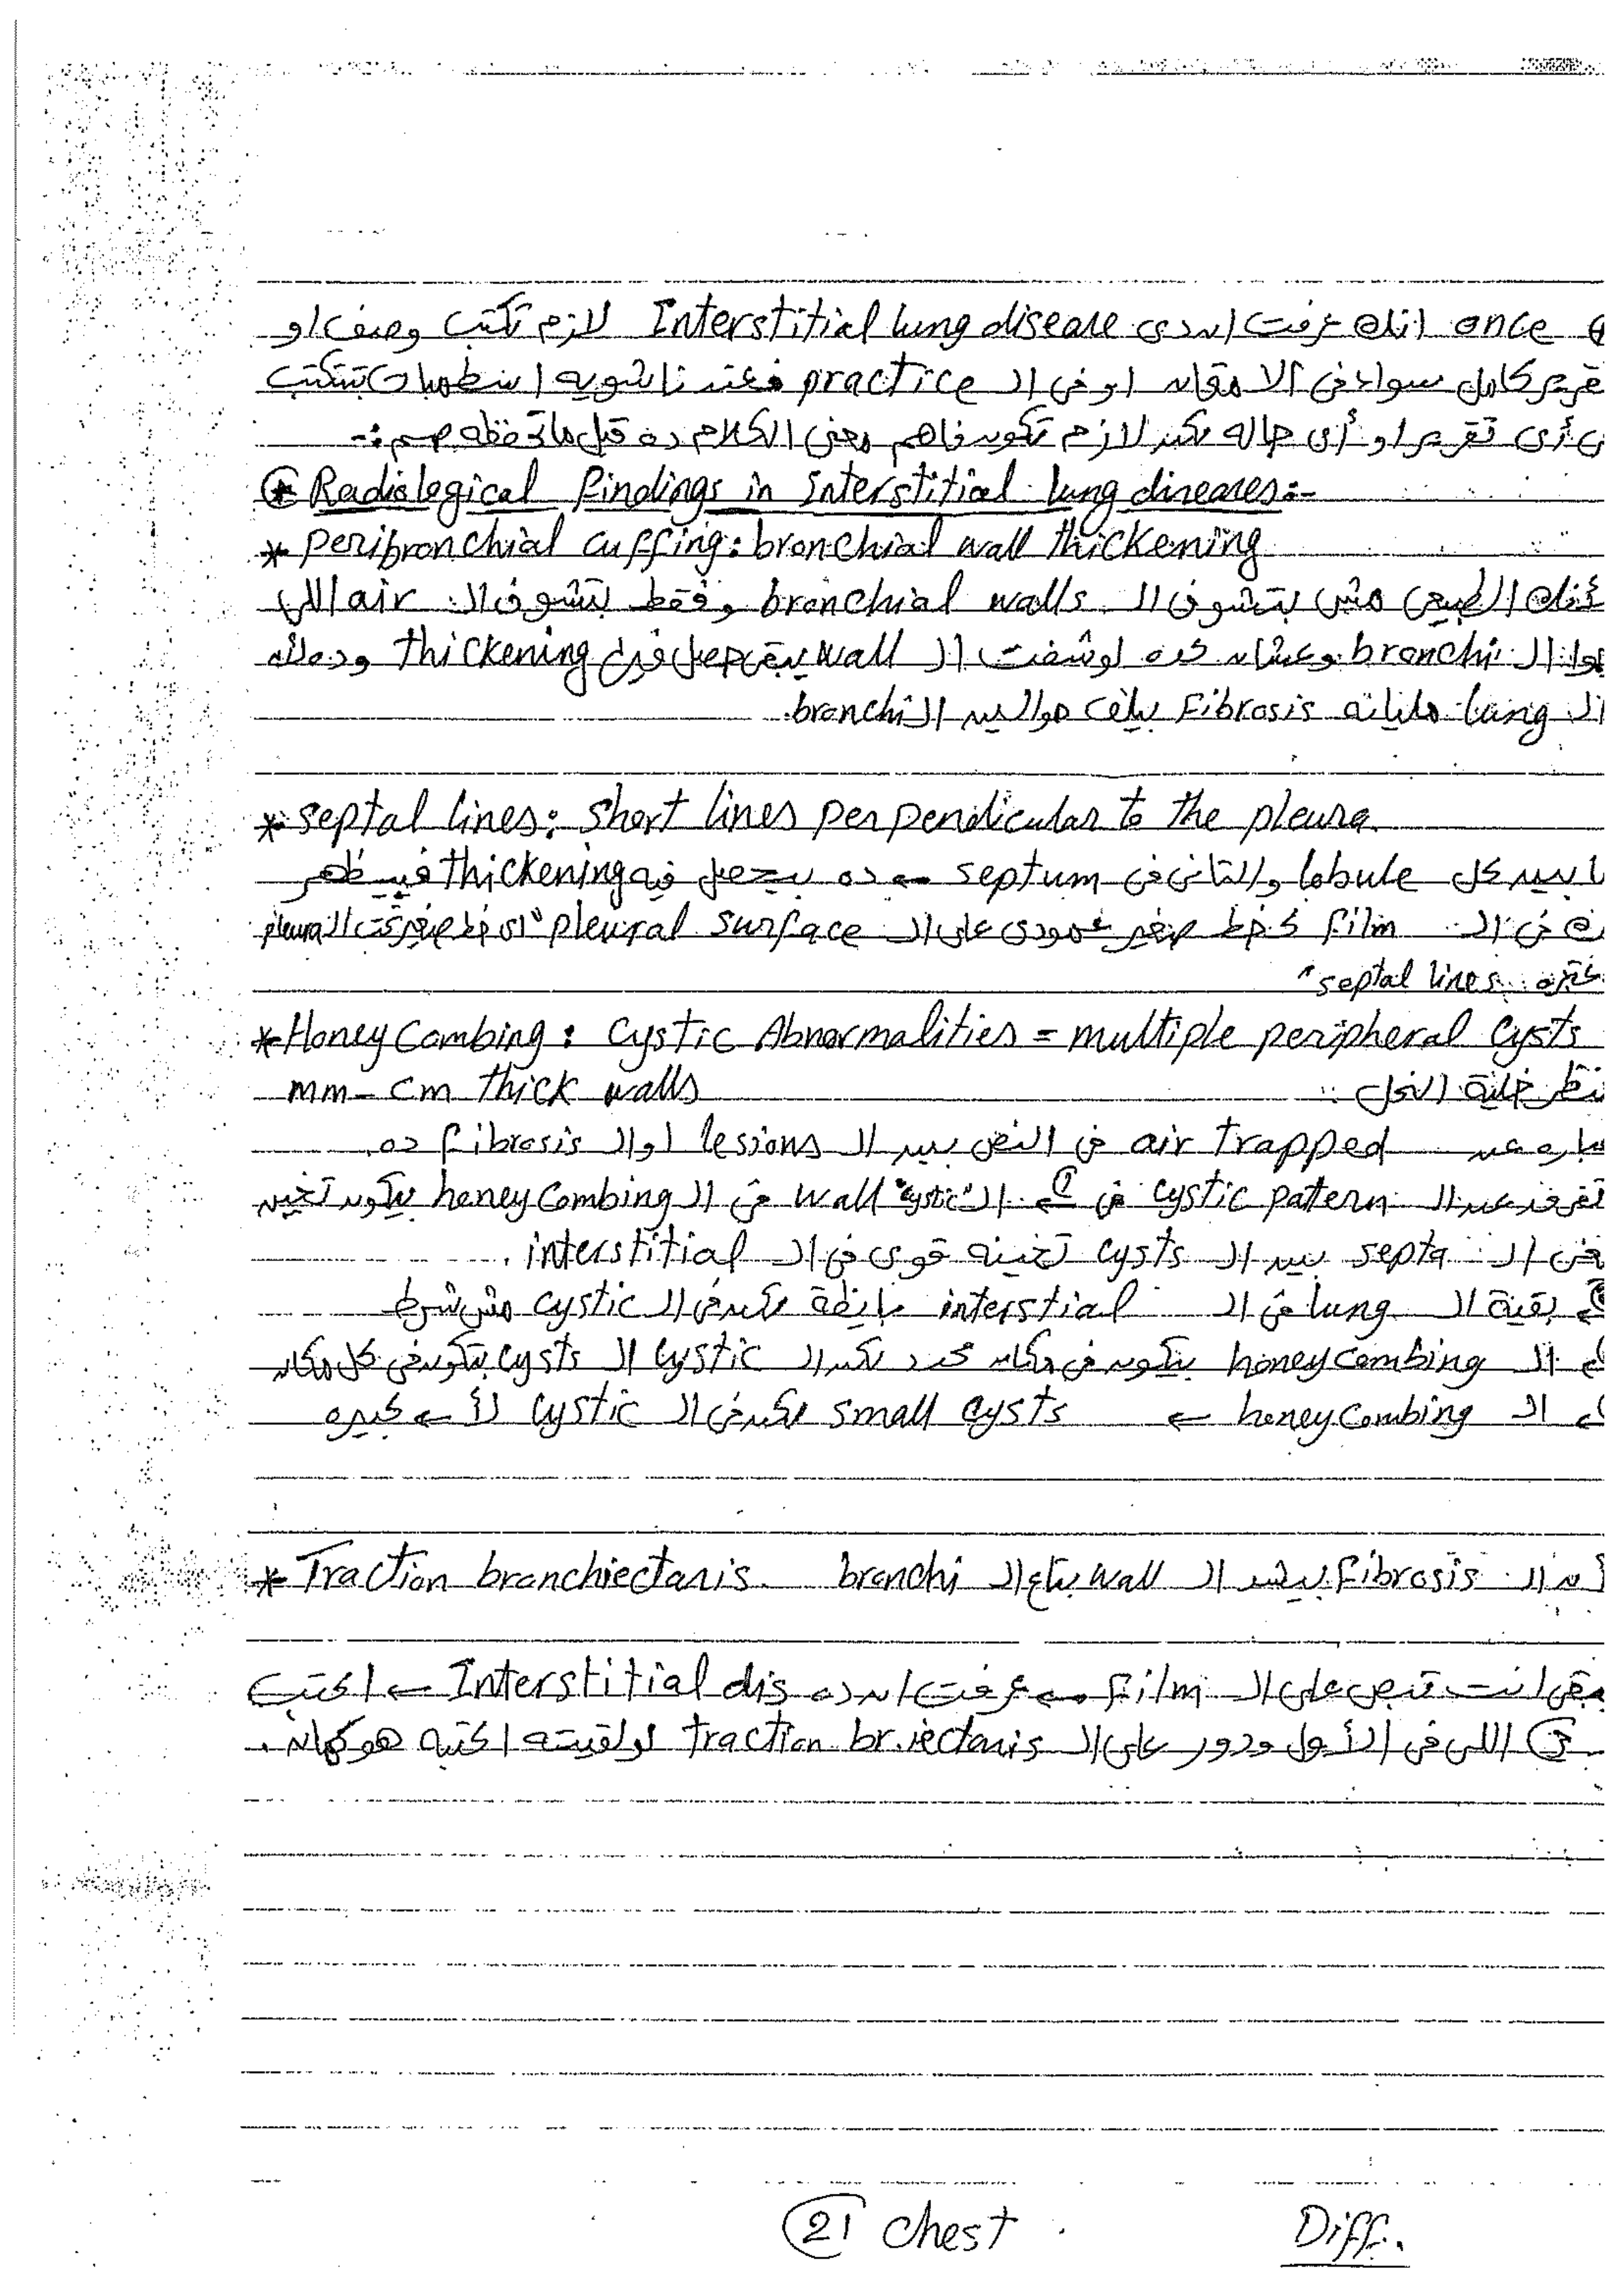 once انك عرفت ان دى Interstitial lung disease لازم تكتب وصف او
كامل سواء فى الامتحان او فى الـ practice فعندنا شوية اسطمبات بتتكتب
أى تقرير او أى حاله لكن لازم تكون فاهم معنى الكلام ده قبل ما تحفظه صم :-
* Radiological findings in interstitial lung diseases:-
* peribronchial cuffing: bronchial wall thickening
الطبيعى مش بتشوف الـ bronchial walls وفقط بتشوف الـ air اللى
الـ bronchi وعشان كده لو شفت الـ wall يبقى حصل فيه thickening وده لأنه
الـ lung مليانه Fibrosis بيلف حوالين الـ bronchi.
* septal lines: short lines perpendicular to the pleura.
بين كل lobule والتانى فى septum ← ده بيحصل فيه thickening فبيظهر
فى الـ film كخط صغير عمودى على الـ pleural surface "اى خط صغير تحت الـ pleura
septal lines "
* Honey Combing: Cystic Abnormalities = multiple peripheral cysts
mm - cm thick walls خلية النحل
عن air trapped فى النص بين الـ lesions او الـ fibrosis ده
عن الـ cystic patern فى ← ① الـ wall "cystic" فى الـ honey combing بيكون تخين
الـ septa بين الـ cysts تخينه قوى فى الـ interstitial .
بقية الـ lung فى الـ interstial بايظة لكن فى الـ cystic مش شرط
الـ honey combing بيكون فى مكان محدد لكن الـ cystic الـ cysts بتكون فى كل مكان
الـ honey combing ← small cysts لكن فى الـ cystic لأ ← كبيره
* Traction bronchiectasis. الـ Fibrosis بيشد الـ wall بتاع الـ bronchi
انت تبص على الـ film ← عرفت ان ده Interstitial dis ← اكتب
اللى فى الأول ودور على الـ traction br.iectasis لو لقيته اكتبه هو كمان .
21 chest
Diff.